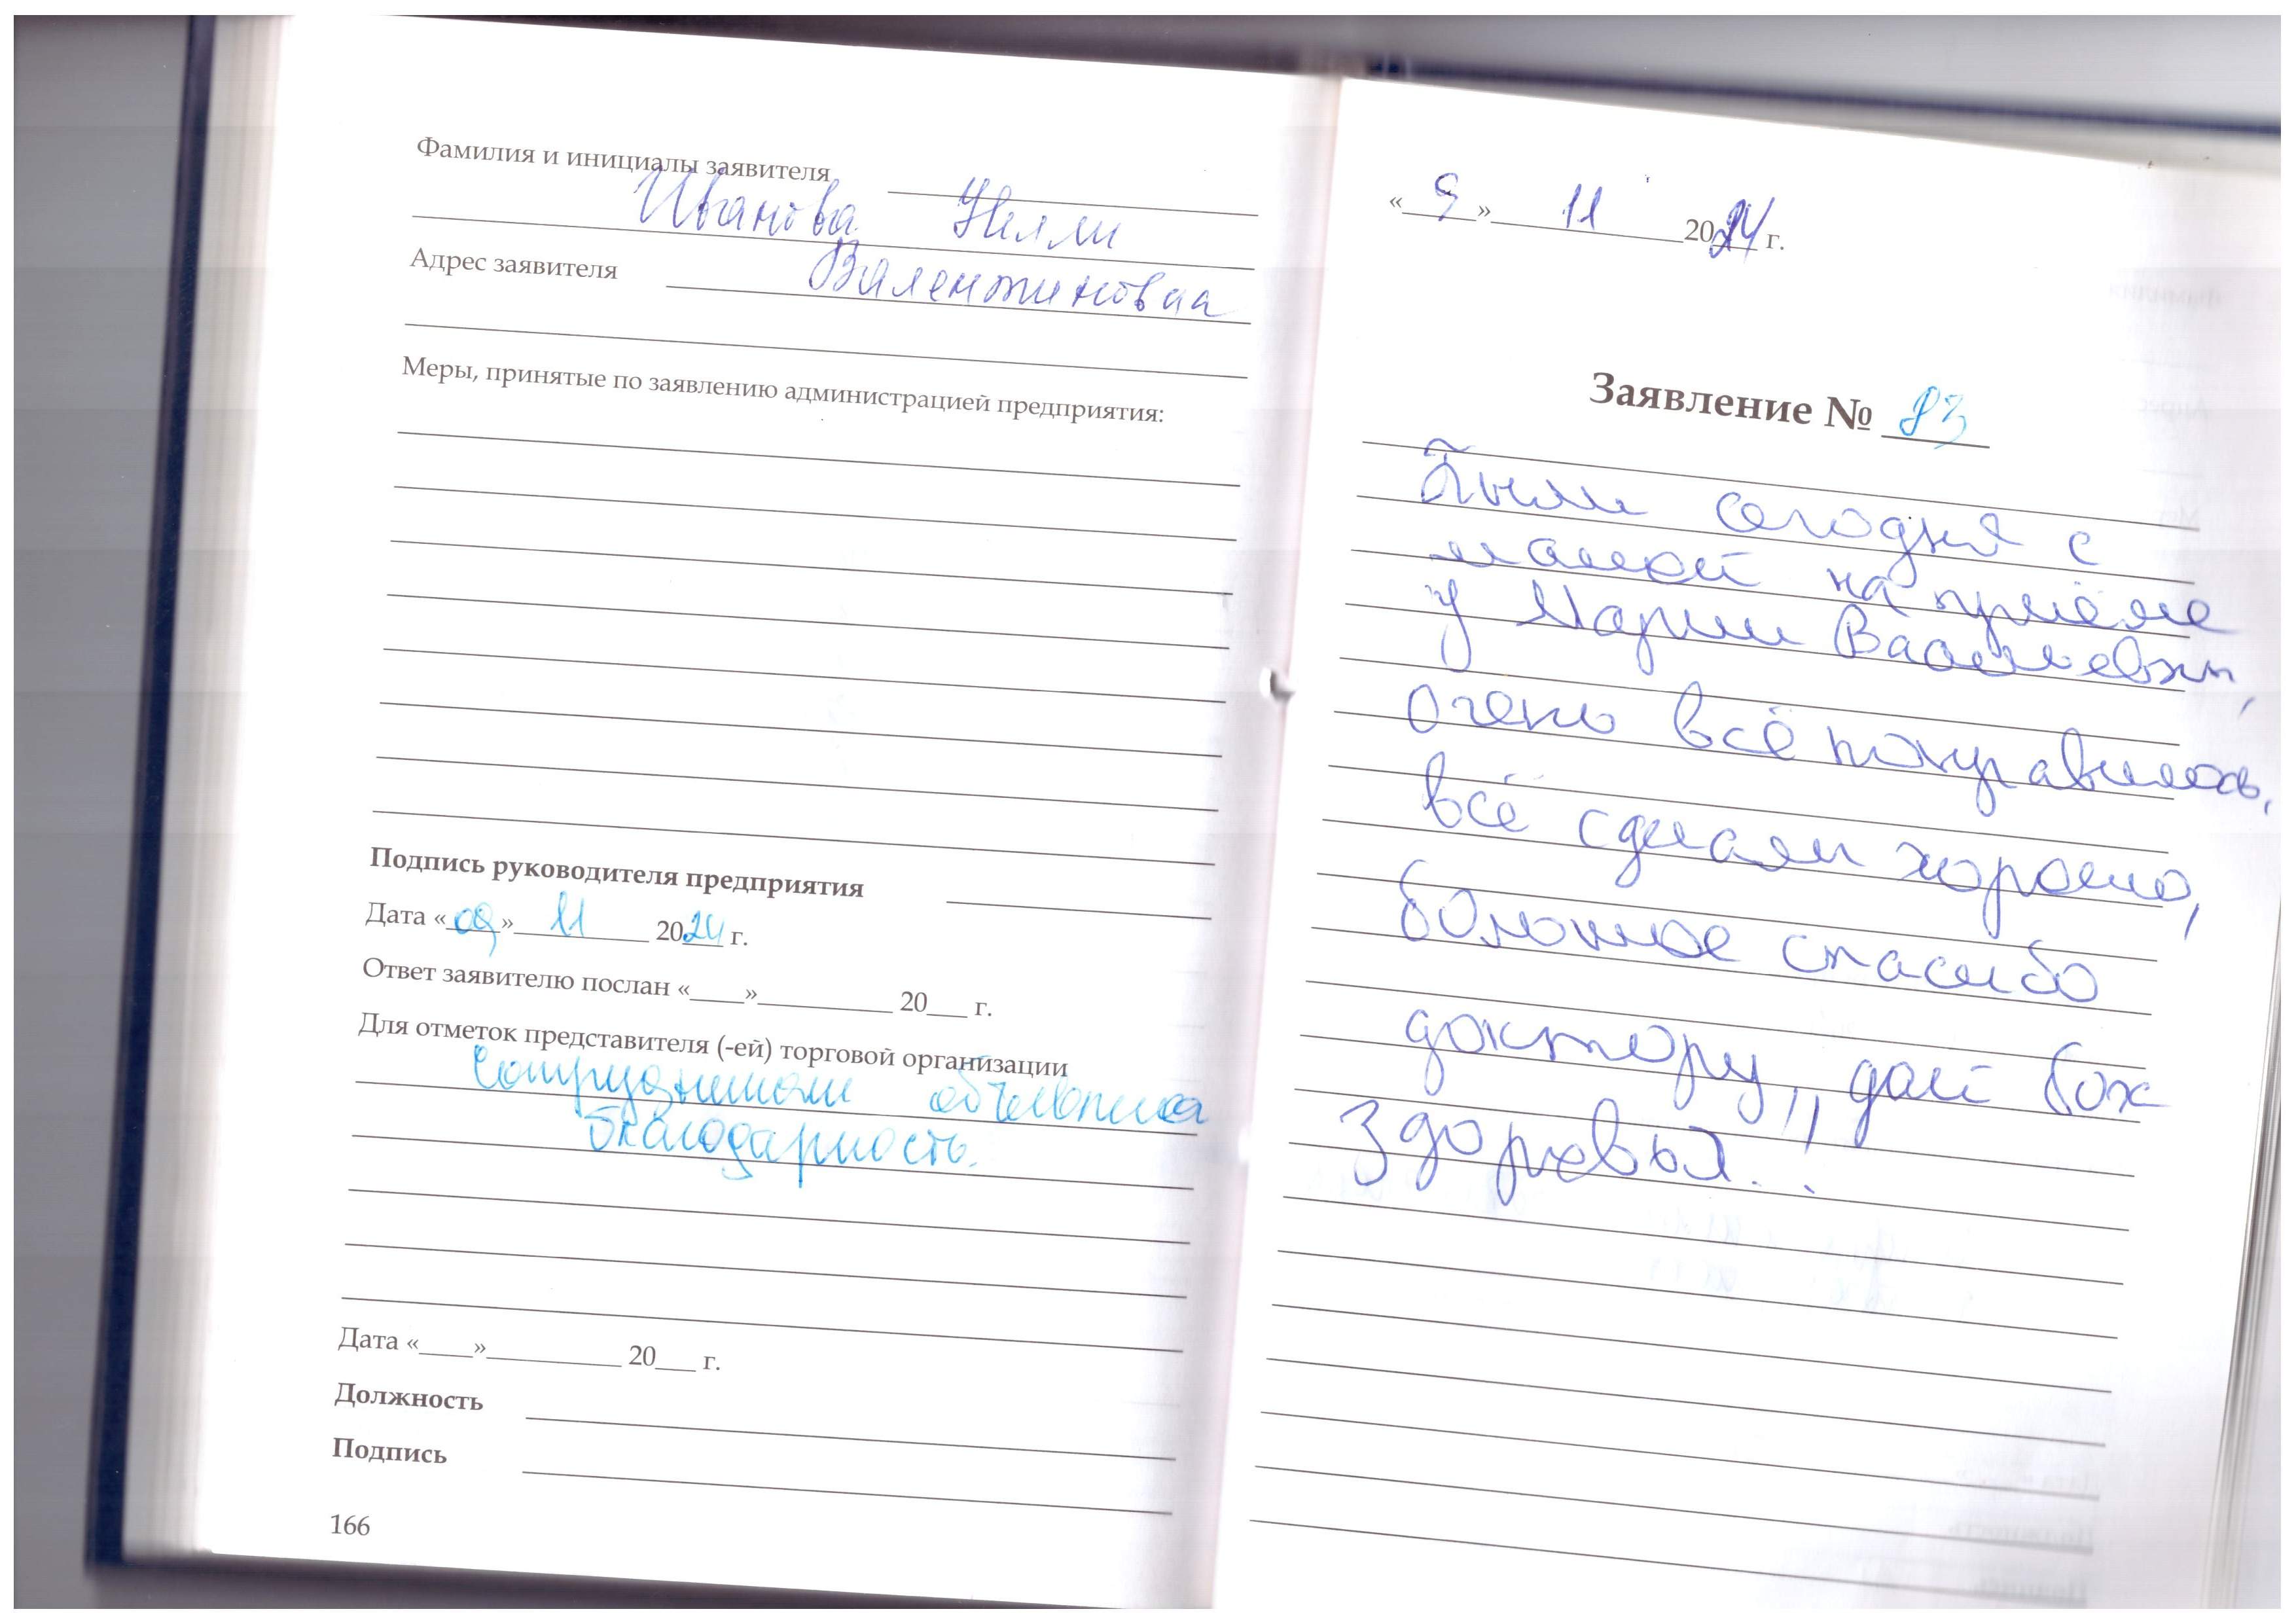 Фамилия и инициалы заявителя
Иванова Нелли
Адрес заявителя Валентиновна
Меры, принятые по заявлению администрацией предприятия:
Подпись руководителя предприятия
Дата «09» 11 2024 г.
Ответ заявителю послан «____»__________ 20___ г.
Для отметок представителя (-ей) торговой организации
Сотрудникам объявлена
благодарность.
Дата «____»__________ 20___ г.
Должность
Подпись
166
«9» 11 2024 г.
Заявление № 83
Были сегодня с
мамой на приёме
у Марии Васильевны,
очень всё понравилось,
всё сделали хорошо,
большое спасибо
доктору!! дай бох
здоровья..